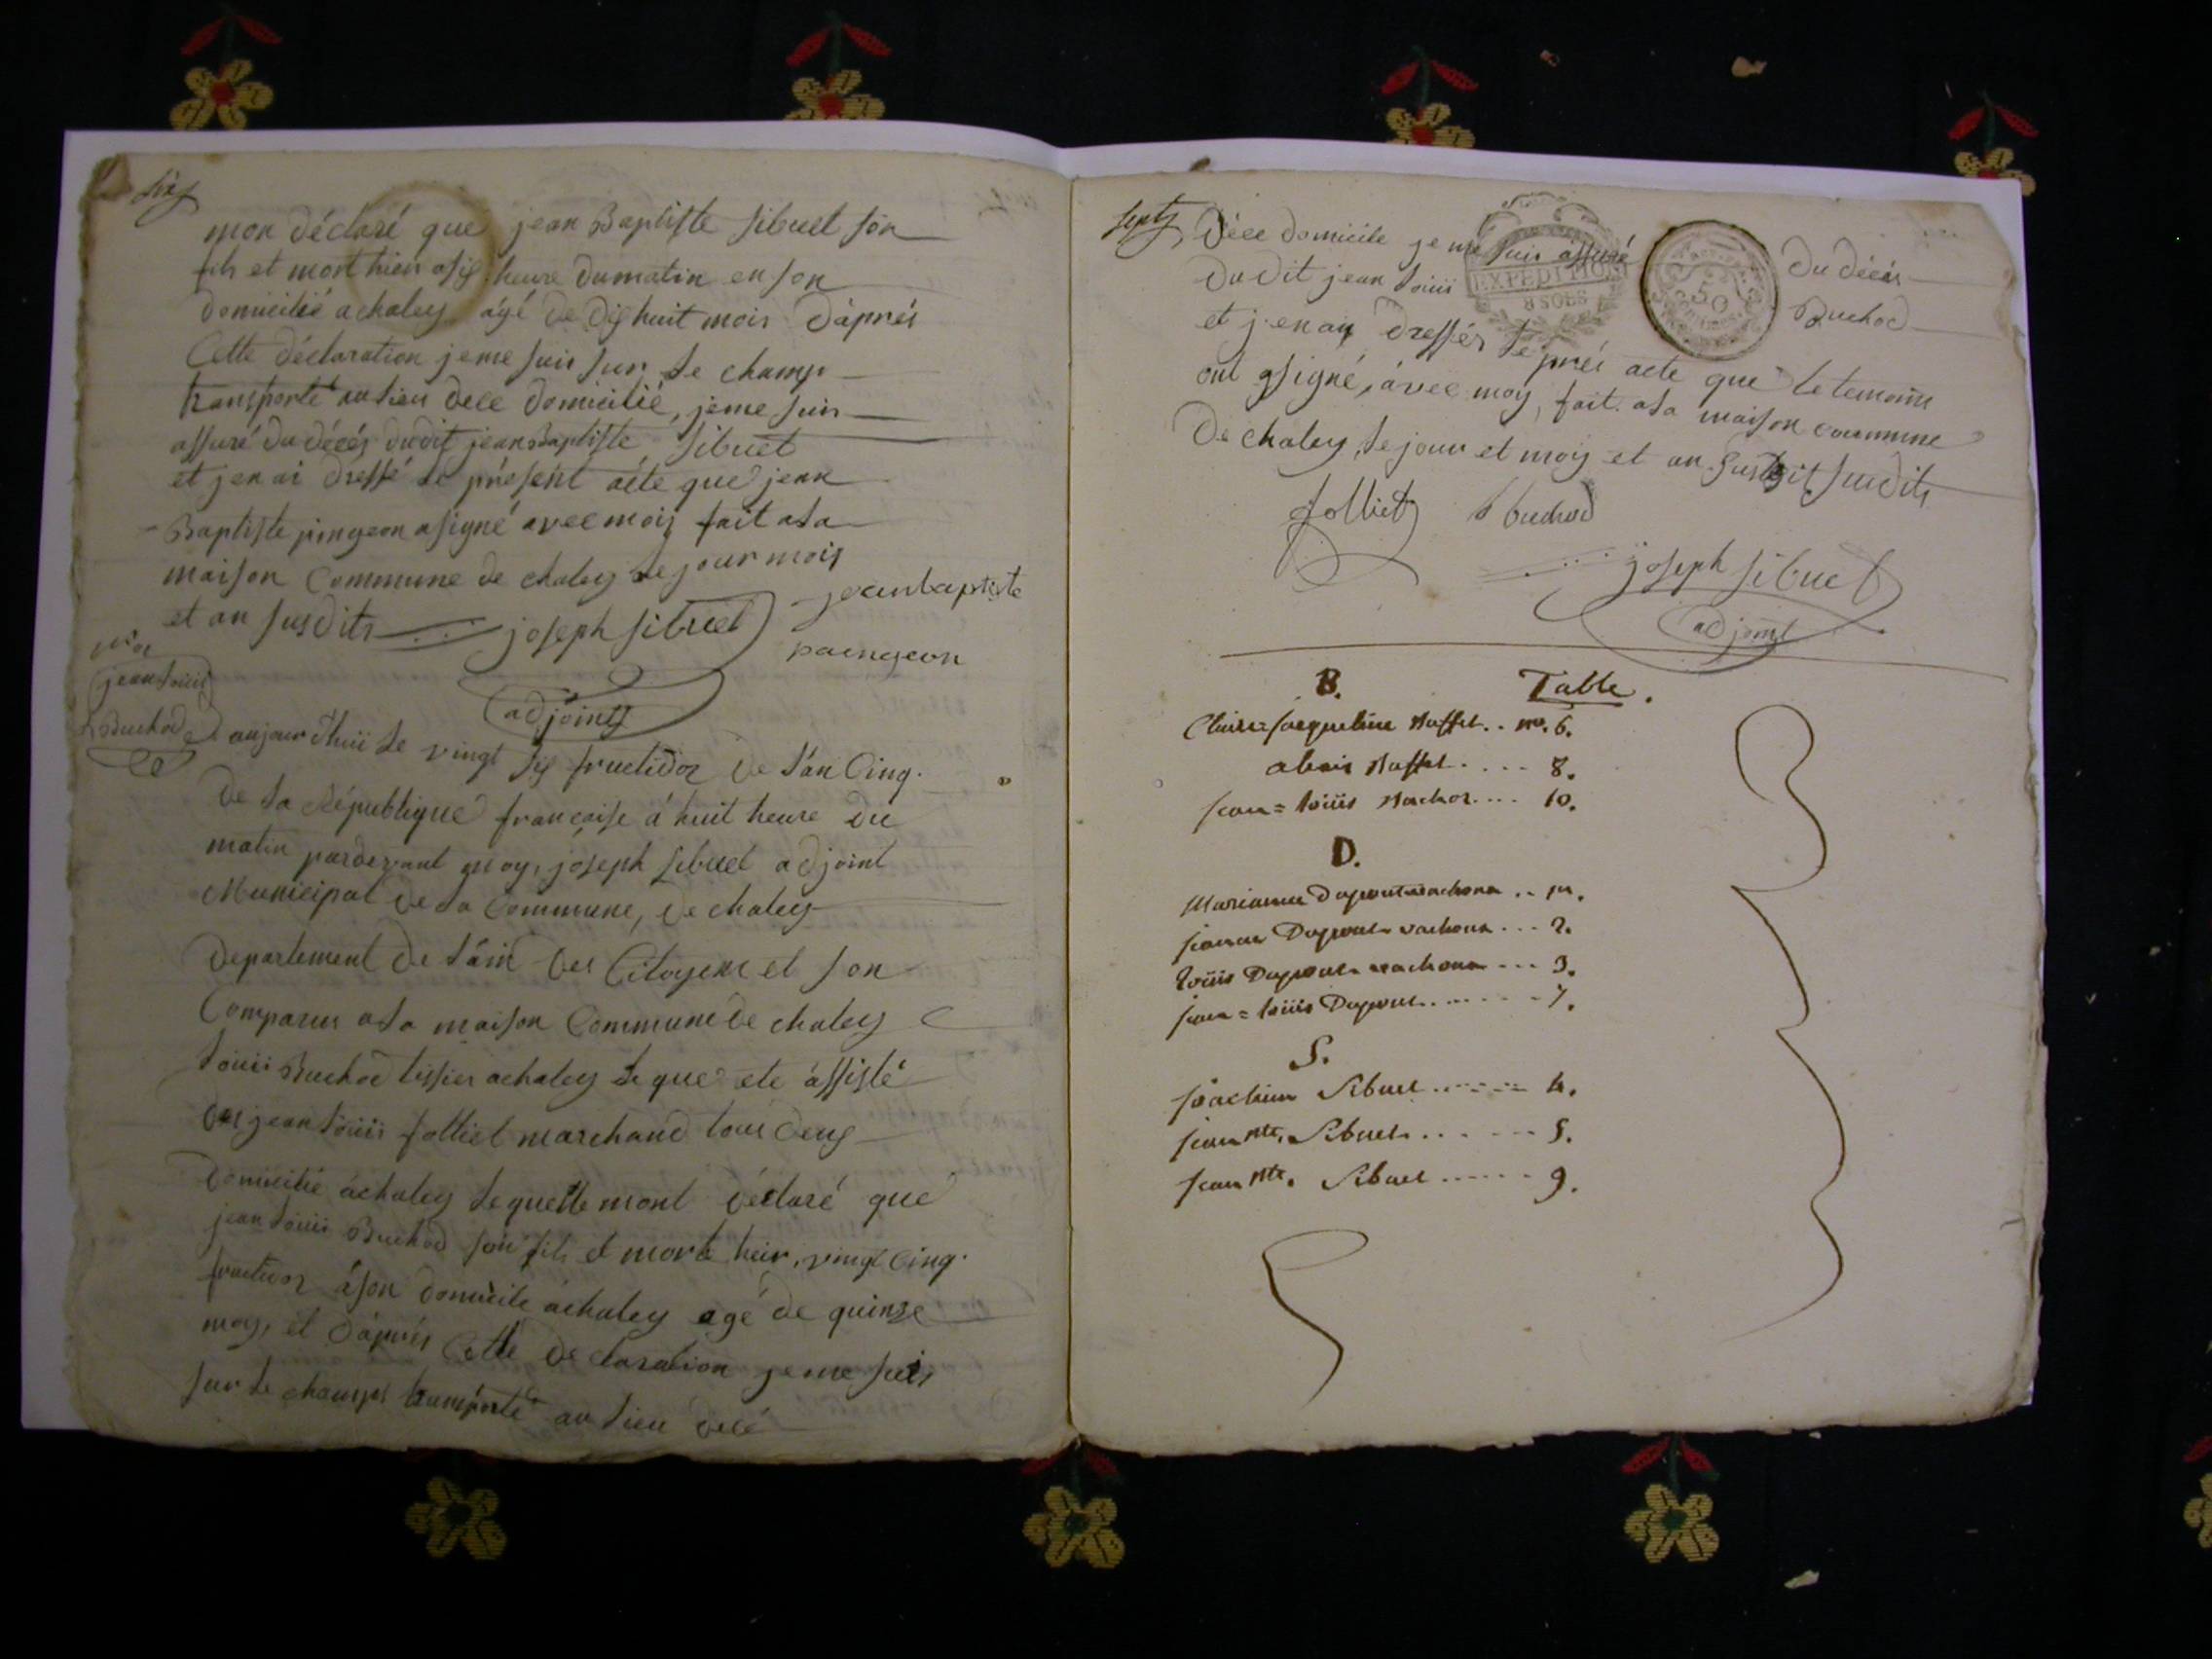 six
mon déclaré que jean Baptiste sibuet son
fils et mort hier a six heure du matin en son
domicilié a chaley ágé de dix huit mois d'áprés
Cette déclaration je me suis sur le champ
transporté au lieu de ce domicilié, je me suis
assuré du décés du dit jean Baptiste sibuet
et j en ai dressé le présent acte que jean
Baptiste pingeon a signé avec mois fait a la
maison Commune de chaley le jour mois
et an susdits joseph sibuet jeanbaptiste
paingeon
adjoint
jean loüis
Buchod aujourdhuï le vingt six fructidor de l'an Cinq
de la République francaise á huit heure du
matin pardevant moy, joseph sibuet adjoint
Municipal de la Commune, de chaley
departement de l'áin les Citoyens et son
Comparus a la maison Commune de chaley
loüis Buchod tissier a chaley le que ete ássisté
de jean loüis jolliet marchand tous deux
domicilié á chaley lequelle mont déclaré que
jean loüis Buchod son fils et mort heir, vingt Cinq
fructidor á son domicile áchaley agé de quinze
moy, et d'áprés Cette declaration je me suis
sur le champs transporté au lieu de cé
septs
dece domicile je me suis assuré du décés
EXPEDITION
8 SOLS
50
du dit jean loüis Buchod
et j'en ay dressér le prés acte que le temoins
ont signé, ávec moy, fait a la maison commune
de chaley, le jour et moy et an susdit susdits
jolliet l buchod
joseph sibuet
adjoint
B. Table.
Jacqueline Buffet.. no. 6.
Buffet .... 8.
Jean=loüis Buchod.... 10.
D.
Marianne Dupont vachonn .. 1er.
Jeanne Dupont vachonn ... 2.
loüis Dupont vachonn --- 3.
Jean=loüis Dupont ....... 7.
S.
Joachim Sibuet ....... 4.
Jean Bte. Sibuet ...... 5.
Jean Bte. Sibuet ...... 9.